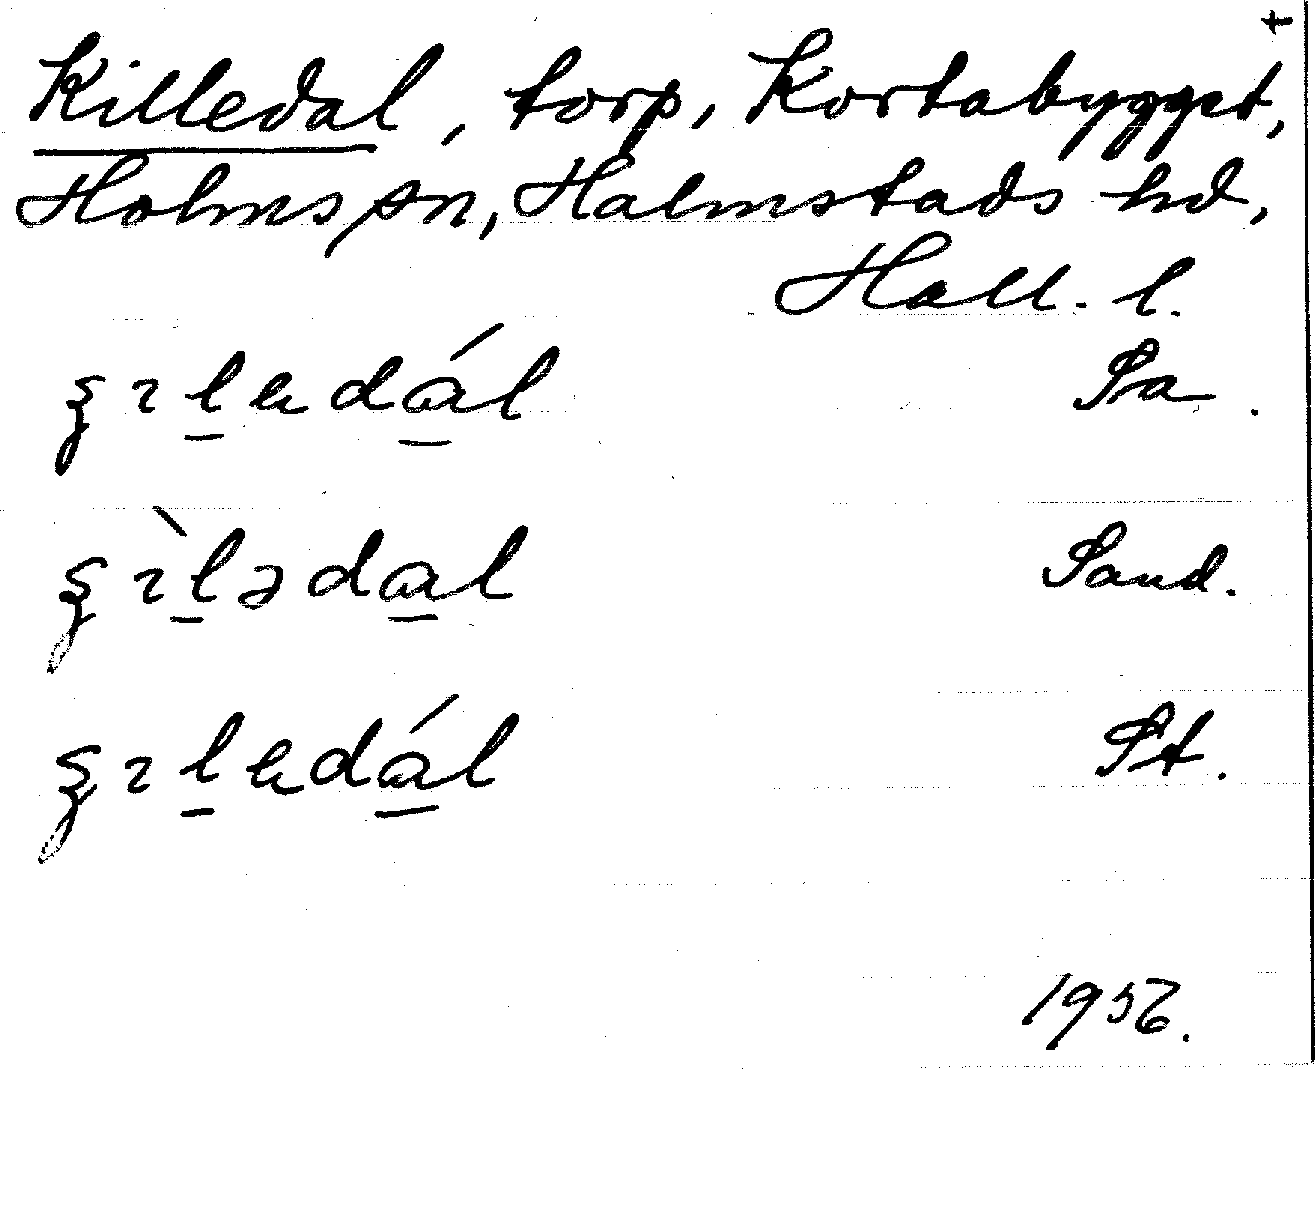 t
Killedal, torp, Kortabygget,
Holms sn, Halmstads hd,
Hall. l.
Sa.
Sand.
St.
1956.